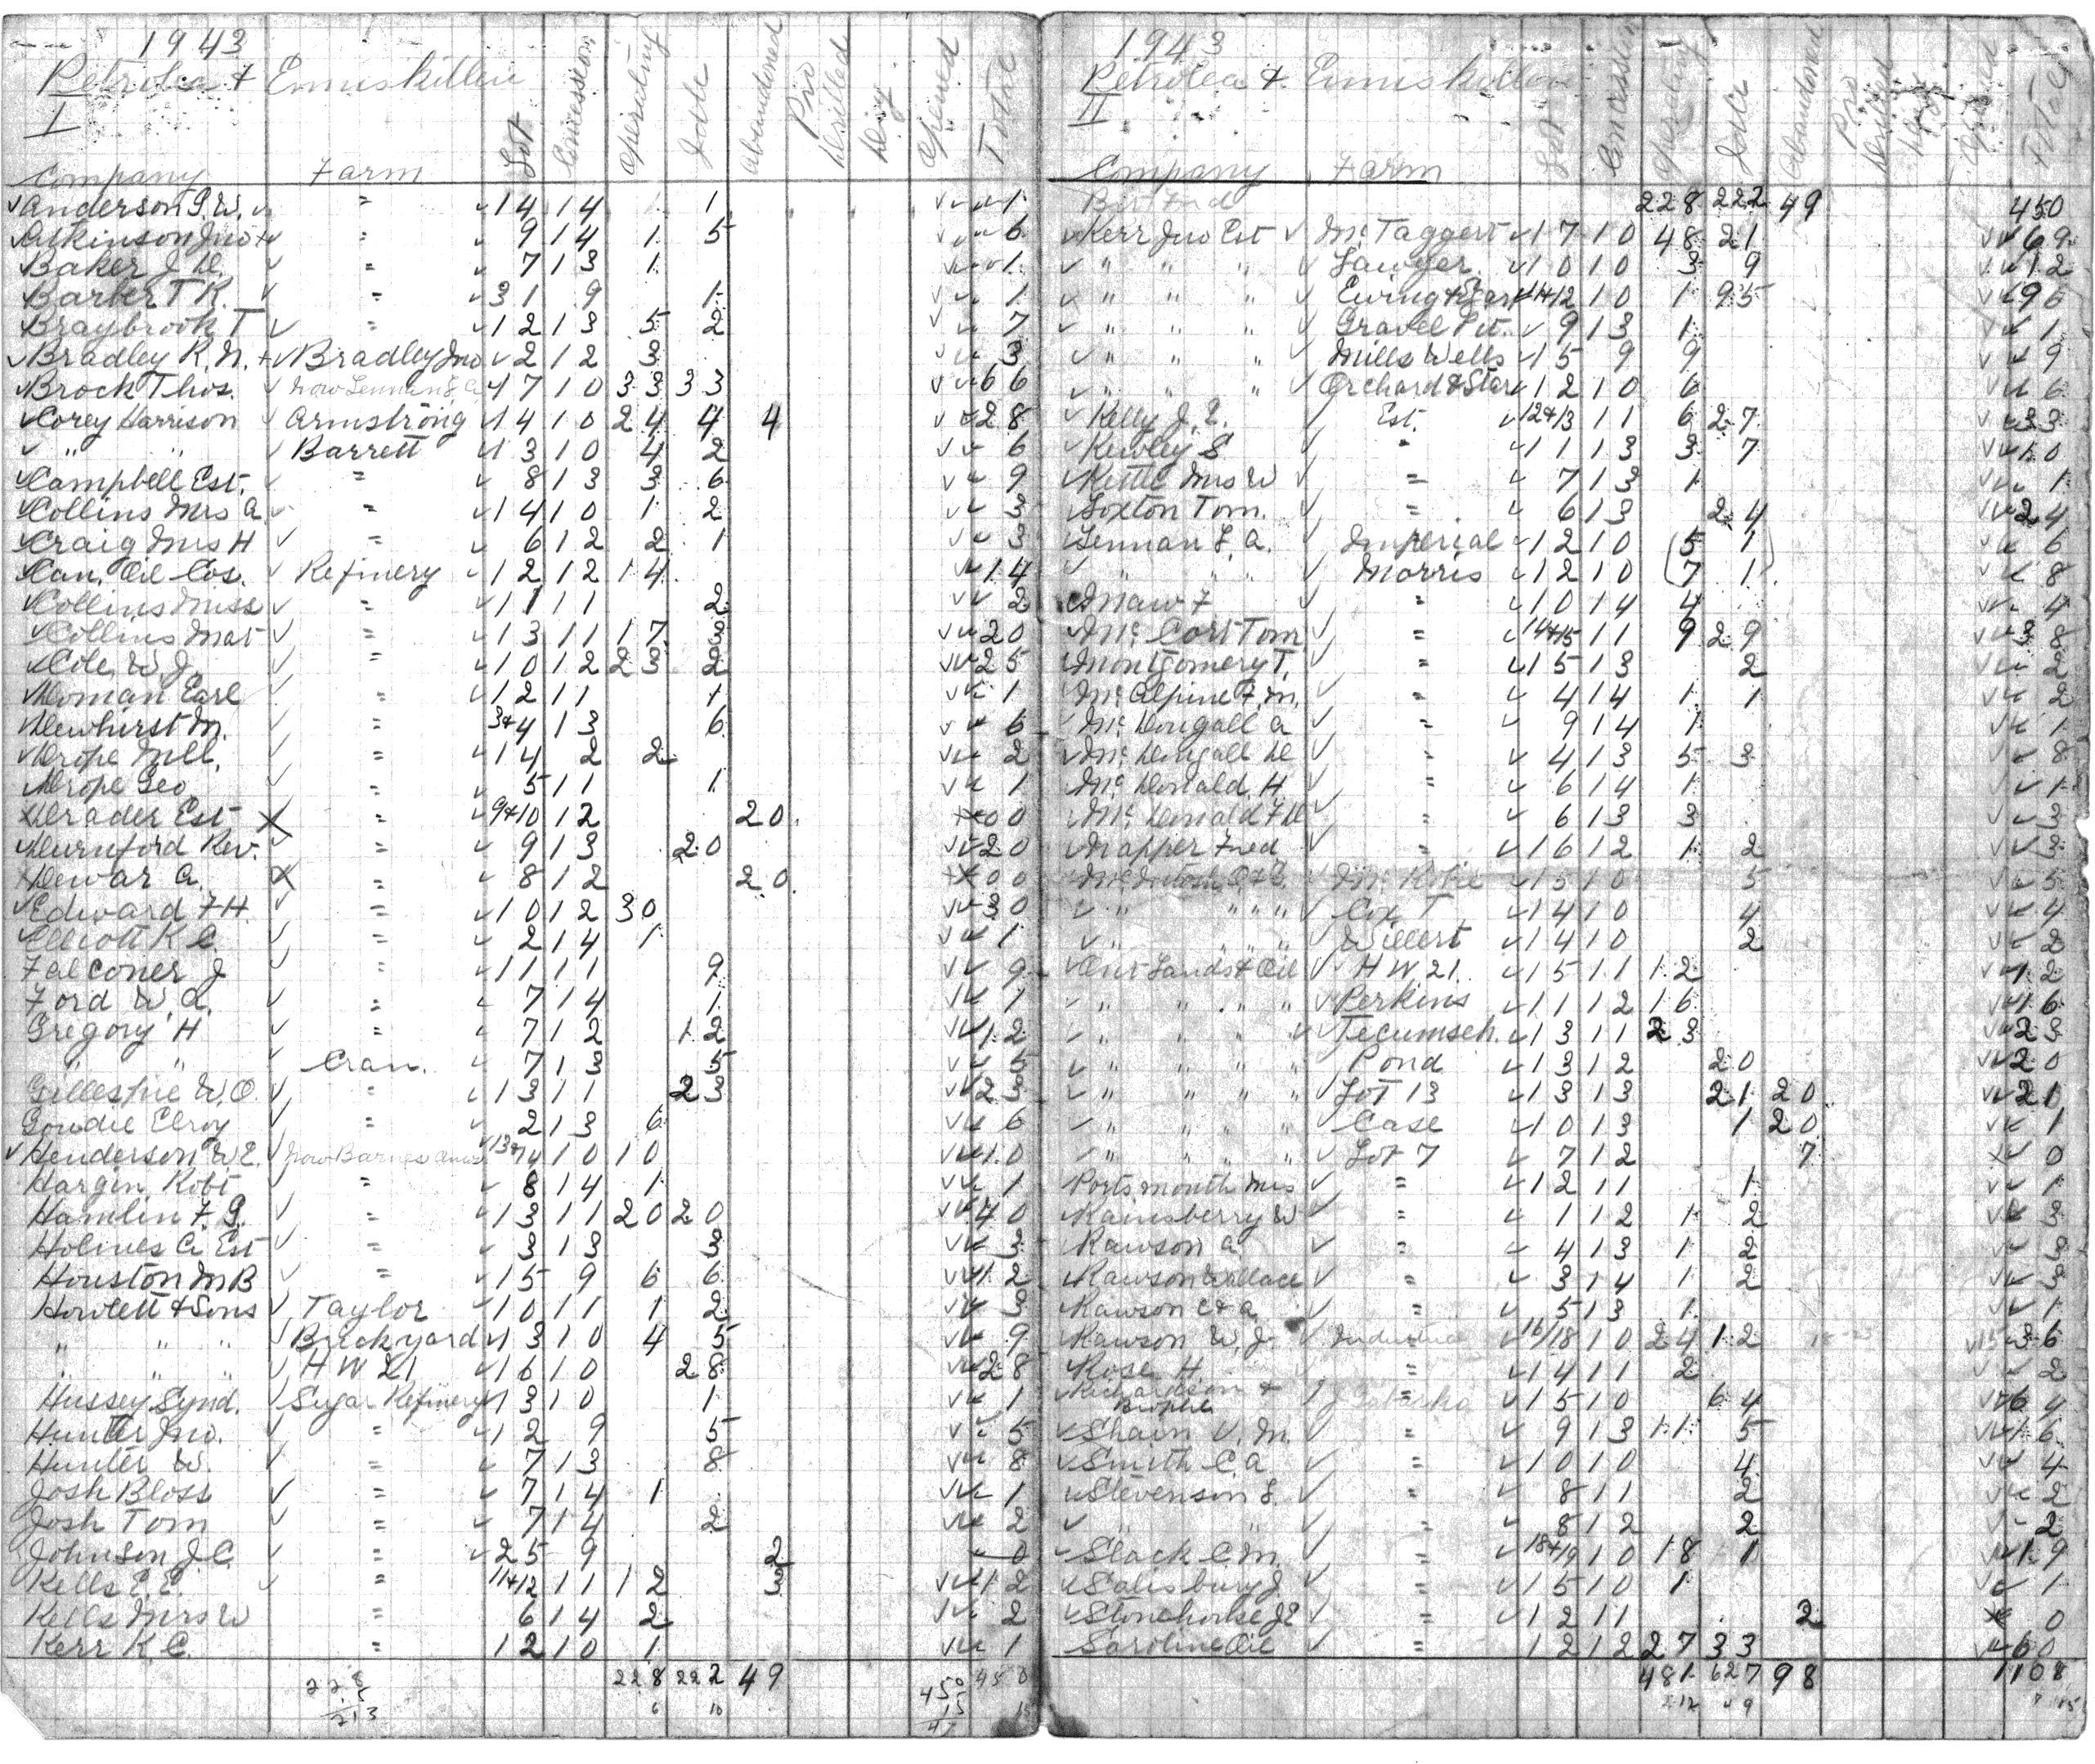 1943
Petrolea & Enniskillen
I
Company Farm Lot Concession Operating Idle Abandoned Pro Drilled Dry Opened Total
Anderson G.W. " 14 14 1 1
Atkinson Jno " 9 14 1 5 6
Baker J.D. " 7 13 1 1
Barber T R. " 31 9 1 1
Braybrook T " 12 13 5 2 7
Bradley R.N. + Bradley Jno 2 12 3 3
Brock Thos. now Lennan L.A 17 10 33 33 66
Corey Harrison Armstrong 14 10 24 4 4 28
" " Barrett 13 10 4 2 6
Campbell Est. = 8 13 3 6 9
Collins Mrs A. = 14 10 1 2 3
Craig Mrs H = 6 12 2 1 3
Can. Oil Cos. Refinery 12 12 14 14
Collins Miss = 11 11 2 2
Collins Mat = 13 11 17 3 20
Cole, W J. = 10 12 23 2 25
Doman Earl = 12 11 1 1
Dewhirst M. = 3+4 13 6 6
Drope Mel. = 14 2 2 2
Drope Geo = 5 11 1 1
Drader Est X = 9+10 12 20 00
Durnford Rev. = 9 13 20 20
Dewar A. X = 8 12 20 00
Edward F H. = 10 12 30 30
Elliott K C. = 2 14 1 1
Falconer J = 11 11 9 9
Ford W.A. = 7 14 1 1
Gregory H = 7 12 12 12
" " Cran. 7 13 5 5
Gillespie W.O. = 13 11 23 23
Goudie Elroy = 2 13 6 6
Henderson W E. now Barnes 13+14 10 10 10
Hargin Robt = 8 14 1 1
Hamlin F. G. = 13 11 20 20 40
Holmes A Est = 3 13 3 3
Houston M B = 15 9 6 6 12
Howlett & Sons Taylor 10 11 1 2 3
" " " Brickyard 13 10 4 5 9
" " " H W 21 16 10 28 28
Hussey Synd. Sugar Refinery 13 10 1 1
Hunter Jno. = 12 9 5 5
Hunter W. = 7 13 8 8
Josh Bloss = 7 14 1 1
Josh Tom = 7 14 2 2
Johnson J.C. = 25 9 2 0
Kells E.E. = 11+12 11 12 3 12
Kells Mrs W = 6 14 2 2
Kerr K.C. = 12 10 1 1
228 222 49 450
6 10
1943
Petrolea & Enniskillen
II
Company Farm Lot Concession Operating Idle Abandoned Pro Drilled Dry Opened Total
Br Frd 228 222 49 450
Kerr Jno Est McTaggert 17 10 48 21 69
" " " Sawyer. 10 10 3 9 12
" " " Ewing 11+12 10 1 95 96
" " " Gravel Pit. 9 13 1 1
" " " Mills Wells 15 9 9 9
" " " Orchard & Star 12 10 6 6
Kelly J. E. Est. 12+13 11 6 27 33
Kewley S " 11 13 3 7 10
Kettle Mrs W = 7 13 1 1
Loxton Tom. = 6 13 24 24
Lennan L. A. Imperial 12 10 (5 1) 6
" " " Morris 12 10 (7 1) 8
Maw F = 10 14 4 4
McCort Tom = 14+15 11 9 29 38
Montgomery T. = 15 13 2 2
McAlpine F.M. = 4 14 1 1 2
McDougall A = 9 14 1 1
McDougall D = 4 13 5 3 8
McDonald, H = 6 14 1 1
McDonald F D = 6 13 3 3
Napper Fred = 16 12 1 2 3
McIntosh McRobie 15 10 5 5
" " " " Cox T. 14 10 4 4
" " " " Willert 14 10 2 2
Ont Lands & Oil H W 21. 15 11 12 12
" " " " Perkins 11 12 16 16
" " " " Tecumseh. 13 11 23 23
" " " " Pond 13 12 20 20
" " " " Lot 13 13 13 21 20 21
" " " " Case 10 13 1 20 1
" " " " Lot 7 7 12 7 0
Portsmouth Mrs = 12 11 1 1
Rainsberry W = 1 12 1 2 3
Rawson A = 4 13 1 2 3
Rawson Wallace = 3 14 1 2 3
Rawson C & A = 5 13 1 1
Rawson W. J. 16/18 10 24 12 36
Rose H. = 14 11 2 2
Richardson & Brophe 15 10 64 64
Shaw V. M. = 9 13 11 5 16
Smith C.A. = 10 10 4 4
Stevenson L. = 8 11 2 2
" " = 8 12 2 2
Slack C.M. = 18+19 10 18 1 19
Salisbury J. = 15 10 1 1
Stonehouse J E = 12 11 2 0
Saroline Oil = 12 12 27 33 60
481 627 98 1108